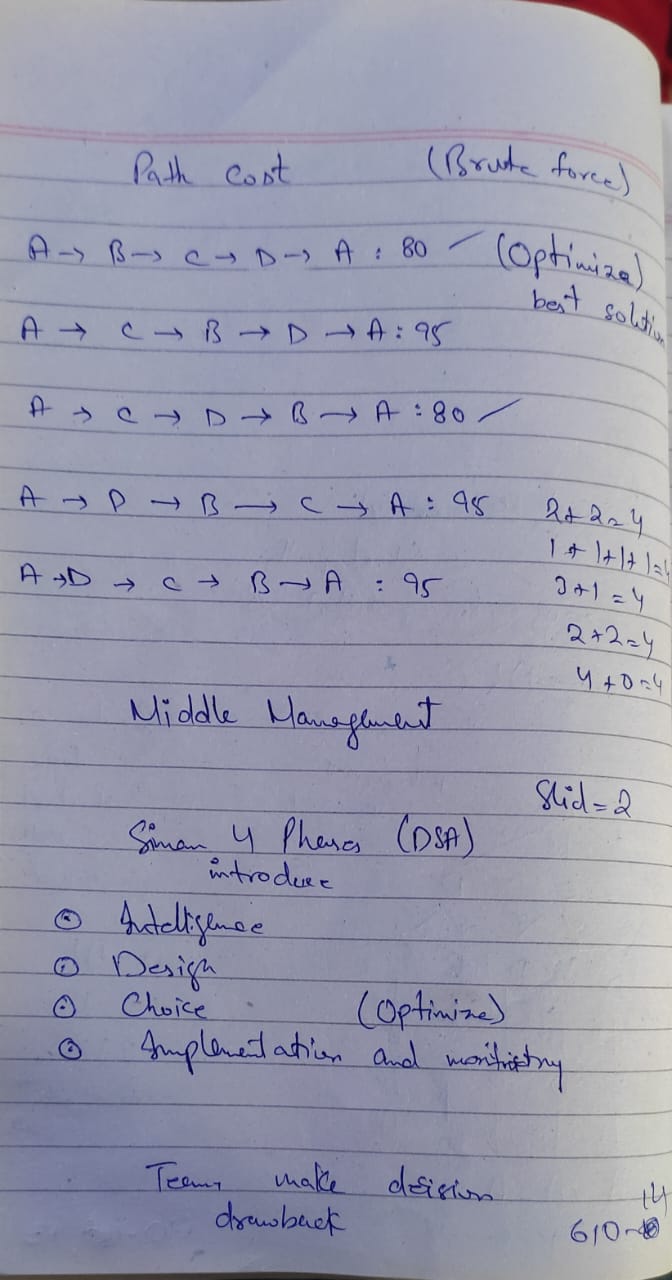 Path Cost (Brute force)
A → B → C → D → A : 80 (Optimize)
best solution
A → C → B → D → A : 95
A → C → D → B → A : 80
A → D → B → C → A : 95
2+2=4
1+1+1+1=4
A → D → C → B → A : 95
3+1=4
2+2=4
4+0=4
Middle Management
Slid=2
Siman 4 Phases (DSA)
introduce
Intelligence
Design
Choice (Optimize)
Implementation and
Team make
drawback
14
610-